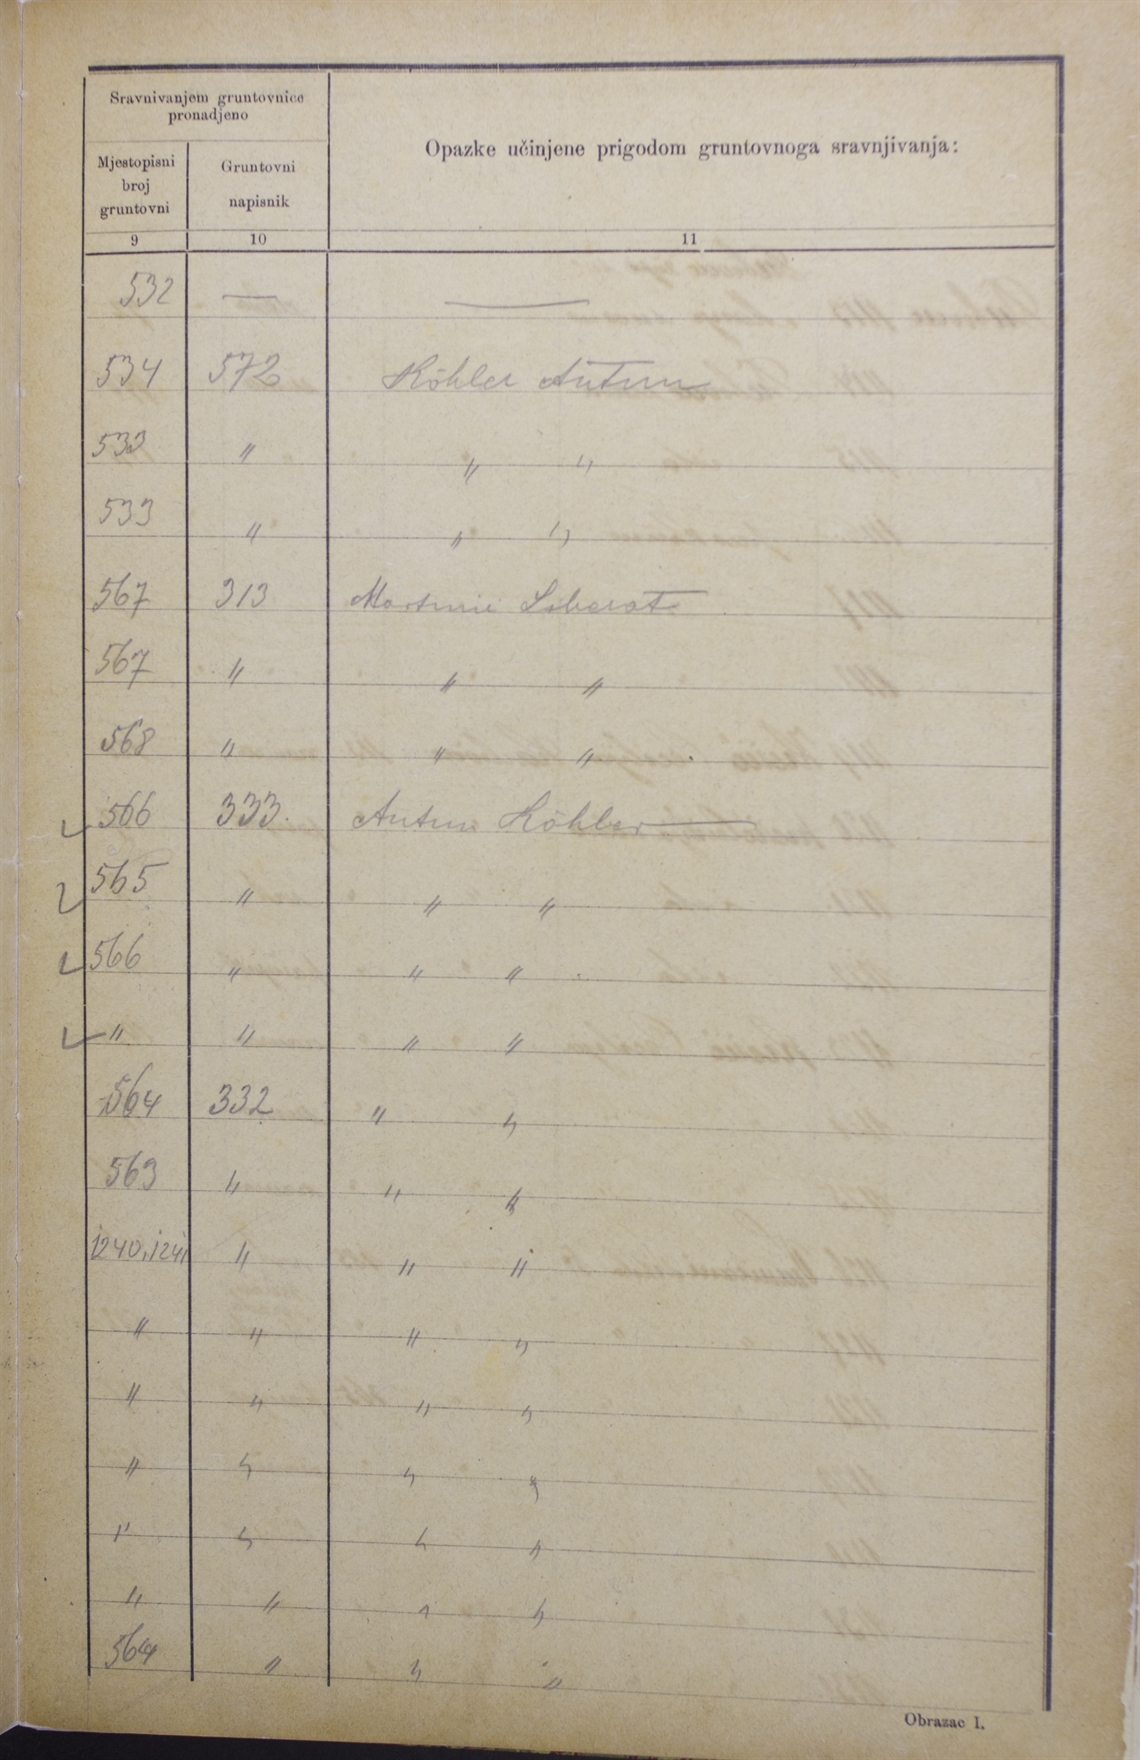 Sravnivanjem gruntovnice
pronadjeno
Opazke učinjene prigodom gruntovnoga sravnjivanja:
Mjestopisni
broj
gruntovni
Gruntovni
napisnik
9 10 11
532 — —
534 572 Köhler Antun
533 " " "
533 " " "
567 313 Liberat
567 " " "
568 " " "
566 333. Antun Köhler
565 " " "
566 " " "
" " " "
564 332 " "
563 " " "
1240,1241 " " "
" " " "
" " " "
" " " "
" " " "
" " " "
564 " " "
Obrazac I.